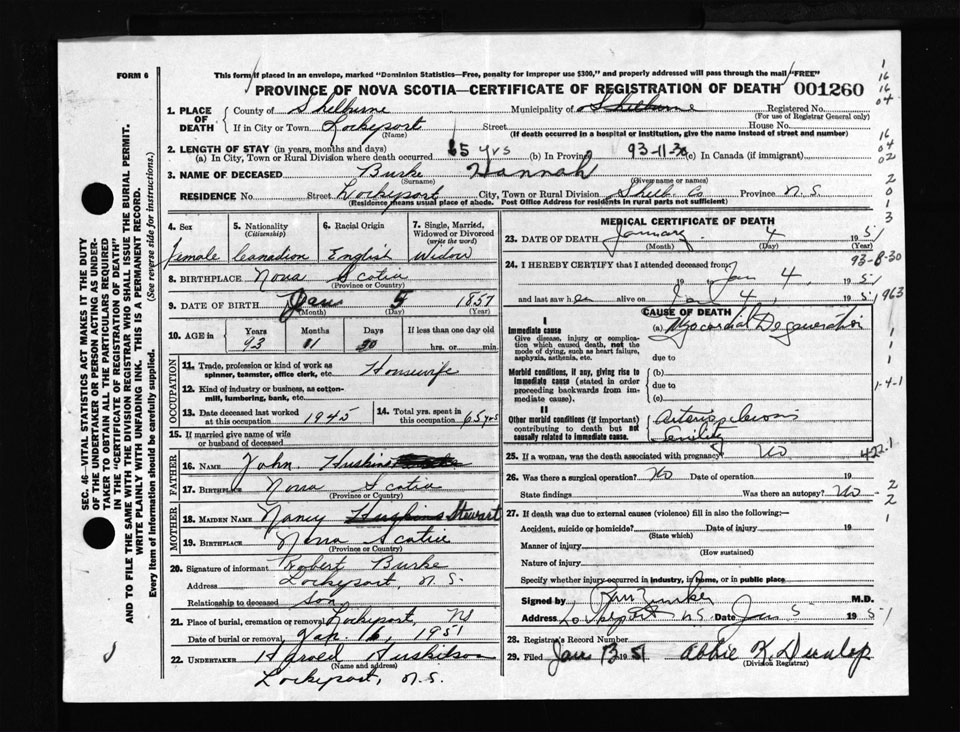 FORM 6
This form if placed in an envelope, marked "Dominion Statistics—Free, penalty for improper use $300," and properly addressed will pass through the mail "FREE"
PROVINCE OF NOVA SCOTIA—CERTIFICATE OF REGISTRATION OF DEATH 001260
1. PLACE OF DEATH County of Shelburne Municipality of Shelburne Registered No.
(For use of Registrar General only)
If in City or Town Lockeport Street House No.
(Name) (If death occurred in a hospital or institution, give the name instead of street and number)
2. LENGTH OF STAY (in years, months and days)
(a) In City, Town or Rural Division where death occurred 65 yrs (b) In Province 93-11-30 (c) In Canada (if immigrant)
3. NAME OF DECEASED Burke Hannah
(Surname) (Given name or names)
RESIDENCE No. Street Lockeport City, Town or Rural Division Shelb. Co Province N.S.
(Residence means usual place of abode. Post Office Address for residents in rural parts not sufficient)
4. Sex 5. Nationality (Citizenship) 6. Racial Origin 7. Single, Married, Widowed or Divorced (write the word)
Female Canadian English Widow
8. BIRTHPLACE Nova Scotia
(Province or Country)
9. DATE OF BIRTH Jan 5 1857
(Month) (Day) (Year)
10. AGE in Years Months Days If less than one day old
93 11 30 hrs. or min.
OCCUPATION
11. Trade, profession or kind of work as spinner, teamster, office clerk, etc. Housewife
12. Kind of industry or business, as cotton-mill, lumbering, bank, etc.
13. Date deceased last worked at this occupation 1945 14. Total yrs. spent in this occupation 65 yrs
15. If married give name of wife or husband of deceased
FATHER
16. NAME John Huskins
17. BIRTHPLACE Nova Scotia
(Province or Country)
MOTHER
18. MAIDEN NAME Nancy Huskins Stewart
19. BIRTHPLACE Nova Scotia
(Province or Country)
20. Signature of informant Robert Burke
Address Lockeport, N.S.
Relationship to deceased son
21. Place of burial, cremation or removal Lockeport, NS
Date of burial or removal Jan. 1951
22. UNDERTAKER Harold Huskilson
(Name and address)
Lockeport, N.S.
MEDICAL CERTIFICATE OF DEATH
23. DATE OF DEATH January 4 1951
(Month) (Day) (Year)
93-B-30
24. I HEREBY CERTIFY that I attended deceased from Jan 4, 1951
19 to
and last saw her alive on Jan 4, 1951
963
CAUSE OF DEATH
I
Immediate cause (a) Myocardial Degeneration
Give disease, injury or complication which caused death, not the mode of dying, such as heart failure, asphyxia, asthenia, etc.
due to
Morbid conditions, if any, giving rise to immediate cause (stated in order proceeding backwards from immediate).
(b)
due to
(c)
1-4-1
II
Other morbid conditions (if important) contributing to death but not causally related to immediate cause.
Arteriosclerosis
Senility
25. If a woman, was the death associated with pregnancy? No
422.1
26. Was there a surgical operation? No Date of operation 19
State findings Was there an autopsy? No
27. If death was due to external causes (violence) fill in also the following:—
Accident, suicide or homicide? Date of injury 19
(State which)
Manner of injury
(How sustained)
Nature of injury
Specify whether injury occurred in industry, in home, or in public place
Signed by M.D.
Address Lockeport NS Date Jan 5 1951
28. Registrar's Record Number
29. Filed Jan 13 1951 Abbie K. Dunlop
(Division Registrar)
SEC. 46—VITAL STATISTICS ACT MAKES IT THE DUTY OF THE UNDERTAKER OR PERSON ACTING AS UNDERTAKER TO OBTAIN ALL THE PARTICULARS REQUIRED IN THE "CERTIFICATE OF REGISTRATION OF DEATH" AND TO FILE THE SAME WITH THE DIVISION REGISTRAR WHO SHALL ISSUE THE BURIAL PERMIT.
WRITE PLAINLY WITH UNFADING INK. THIS IS A PERMANENT RECORD.
Every item of information should be carefully supplied. (See reverse side for instructions.)
1
16
16
04
16
04
02
2
0
1
3
1
1
1
2
2
1